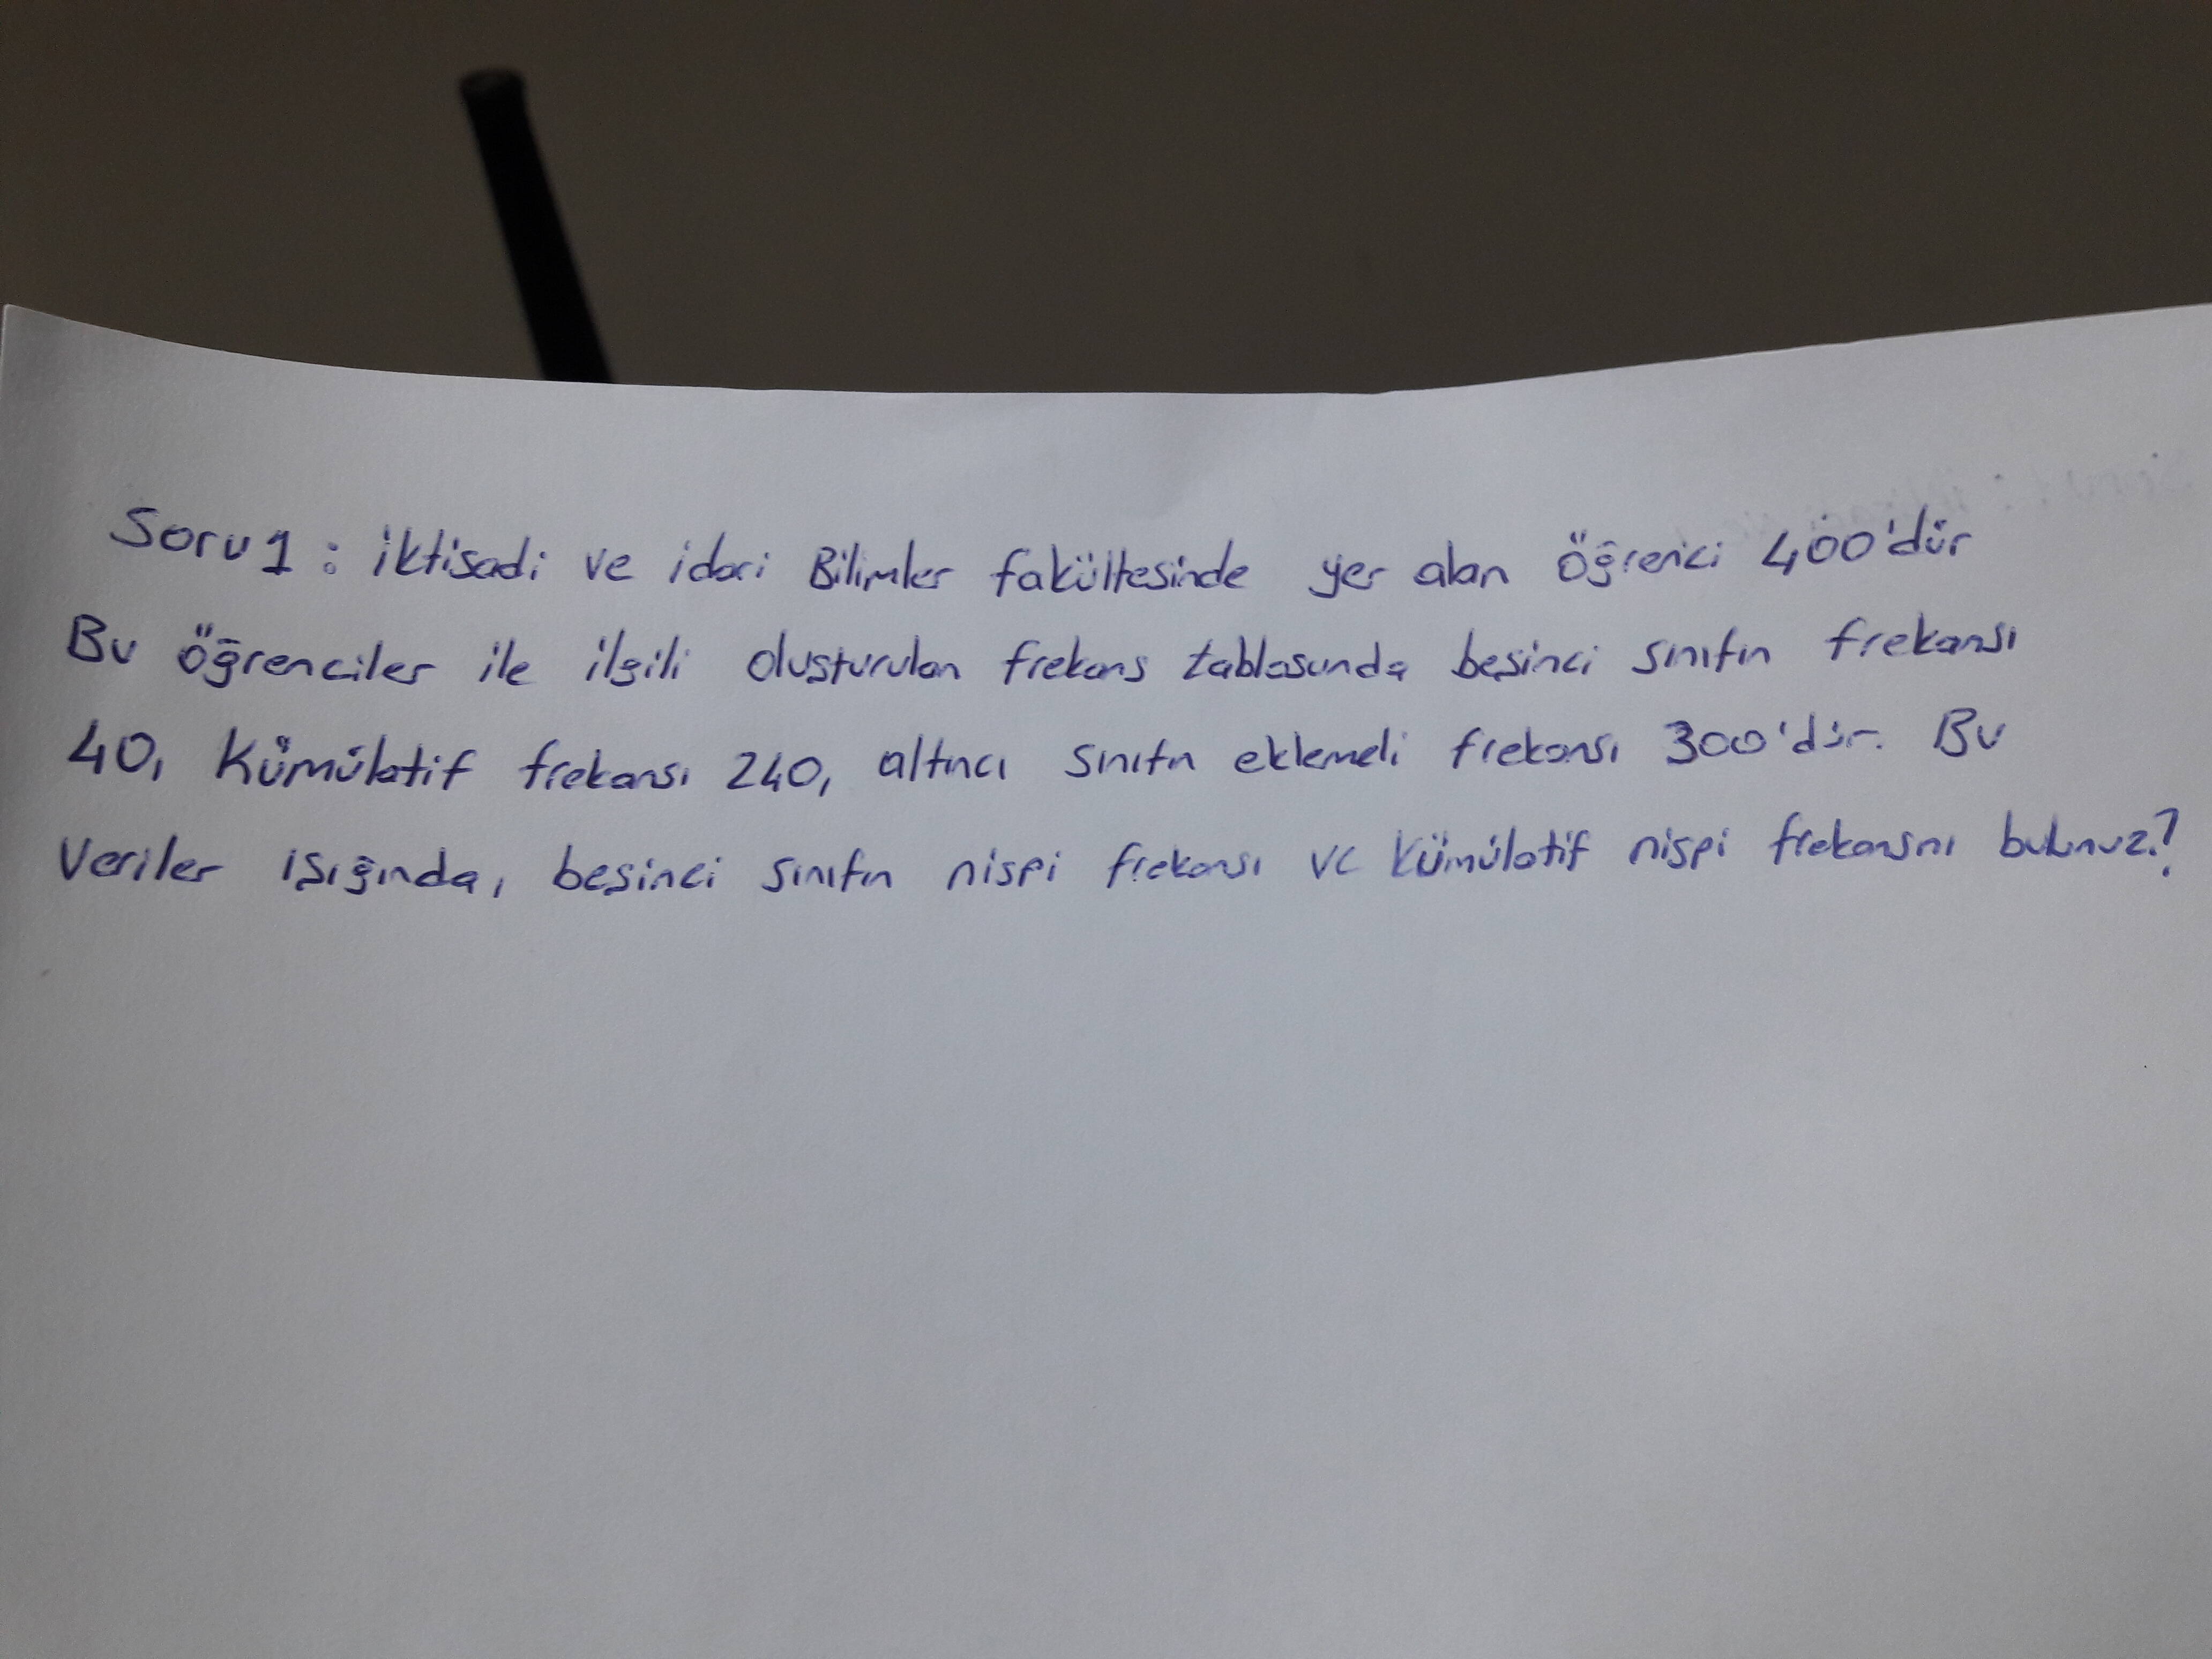 Soru 1 : iktisadi ve idari Bilimler fakültesinde yer alan Öğrenci 400'dür
Bu öğrenciler ile ilgili oluşturulan frekans tablosunda beşinci sınıfın frekansı
40, Kümülatif frekansı 240, altıncı sınıfın eklemeli frekansı 300'dür. Bu
Veriler ışığında, beşinci sınıfın nispi frekansı ve Kümülatif nispi frekansını bulunuz?